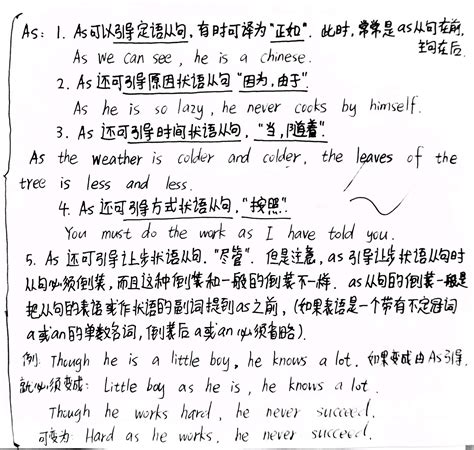 As: 1. As可以引导定语从句,有时可译为"正如". 此时,常常是as从句在前,
主句在后.
As we can see, he is a chinese.
2. As 还可引导原因状语从句 "因为,由于".
As he is so lazy, he never cooks by himself.
3. As 还可引导时间状语从句, "当,随着".
As the weather is colder and colder, the leaves of the
tree is less and less.
4. As 还可引导方式状语从句, "按照".
You must do the work as I have told you.
5. As 还可引导让步状语从句. "尽管". 但是注意, as 引导让步状语从句时
从句必须倒装,而且这种倒装和一般的倒装不一样. as从句的倒装一般是
把从句的表语或作状语的副词提到as之前, (如果表语是一个带有不定冠词
a或an的单数名词,倒装后a或an必须省略).
例: Though he is a little boy, he knows a lot. 如果变成由As引导.
就必须变成: Little boy as he is, he knows a lot.
Though he works hard, he never succeed.
可变为: Hard as he works, he never succeed.